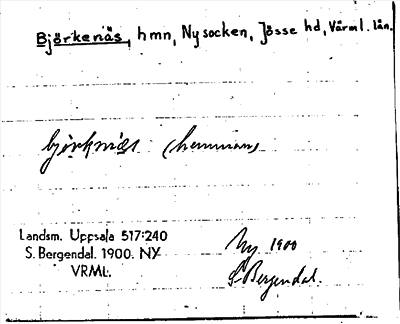 Björkenäs, hmn, Ny socken, Jösse hd, Värml. län.
björknäs (hemman)
Landsm. Uppsala 517:240
S. Bergendal. 1900. NY
VRML.
Ny 1900
S. Bergendal.